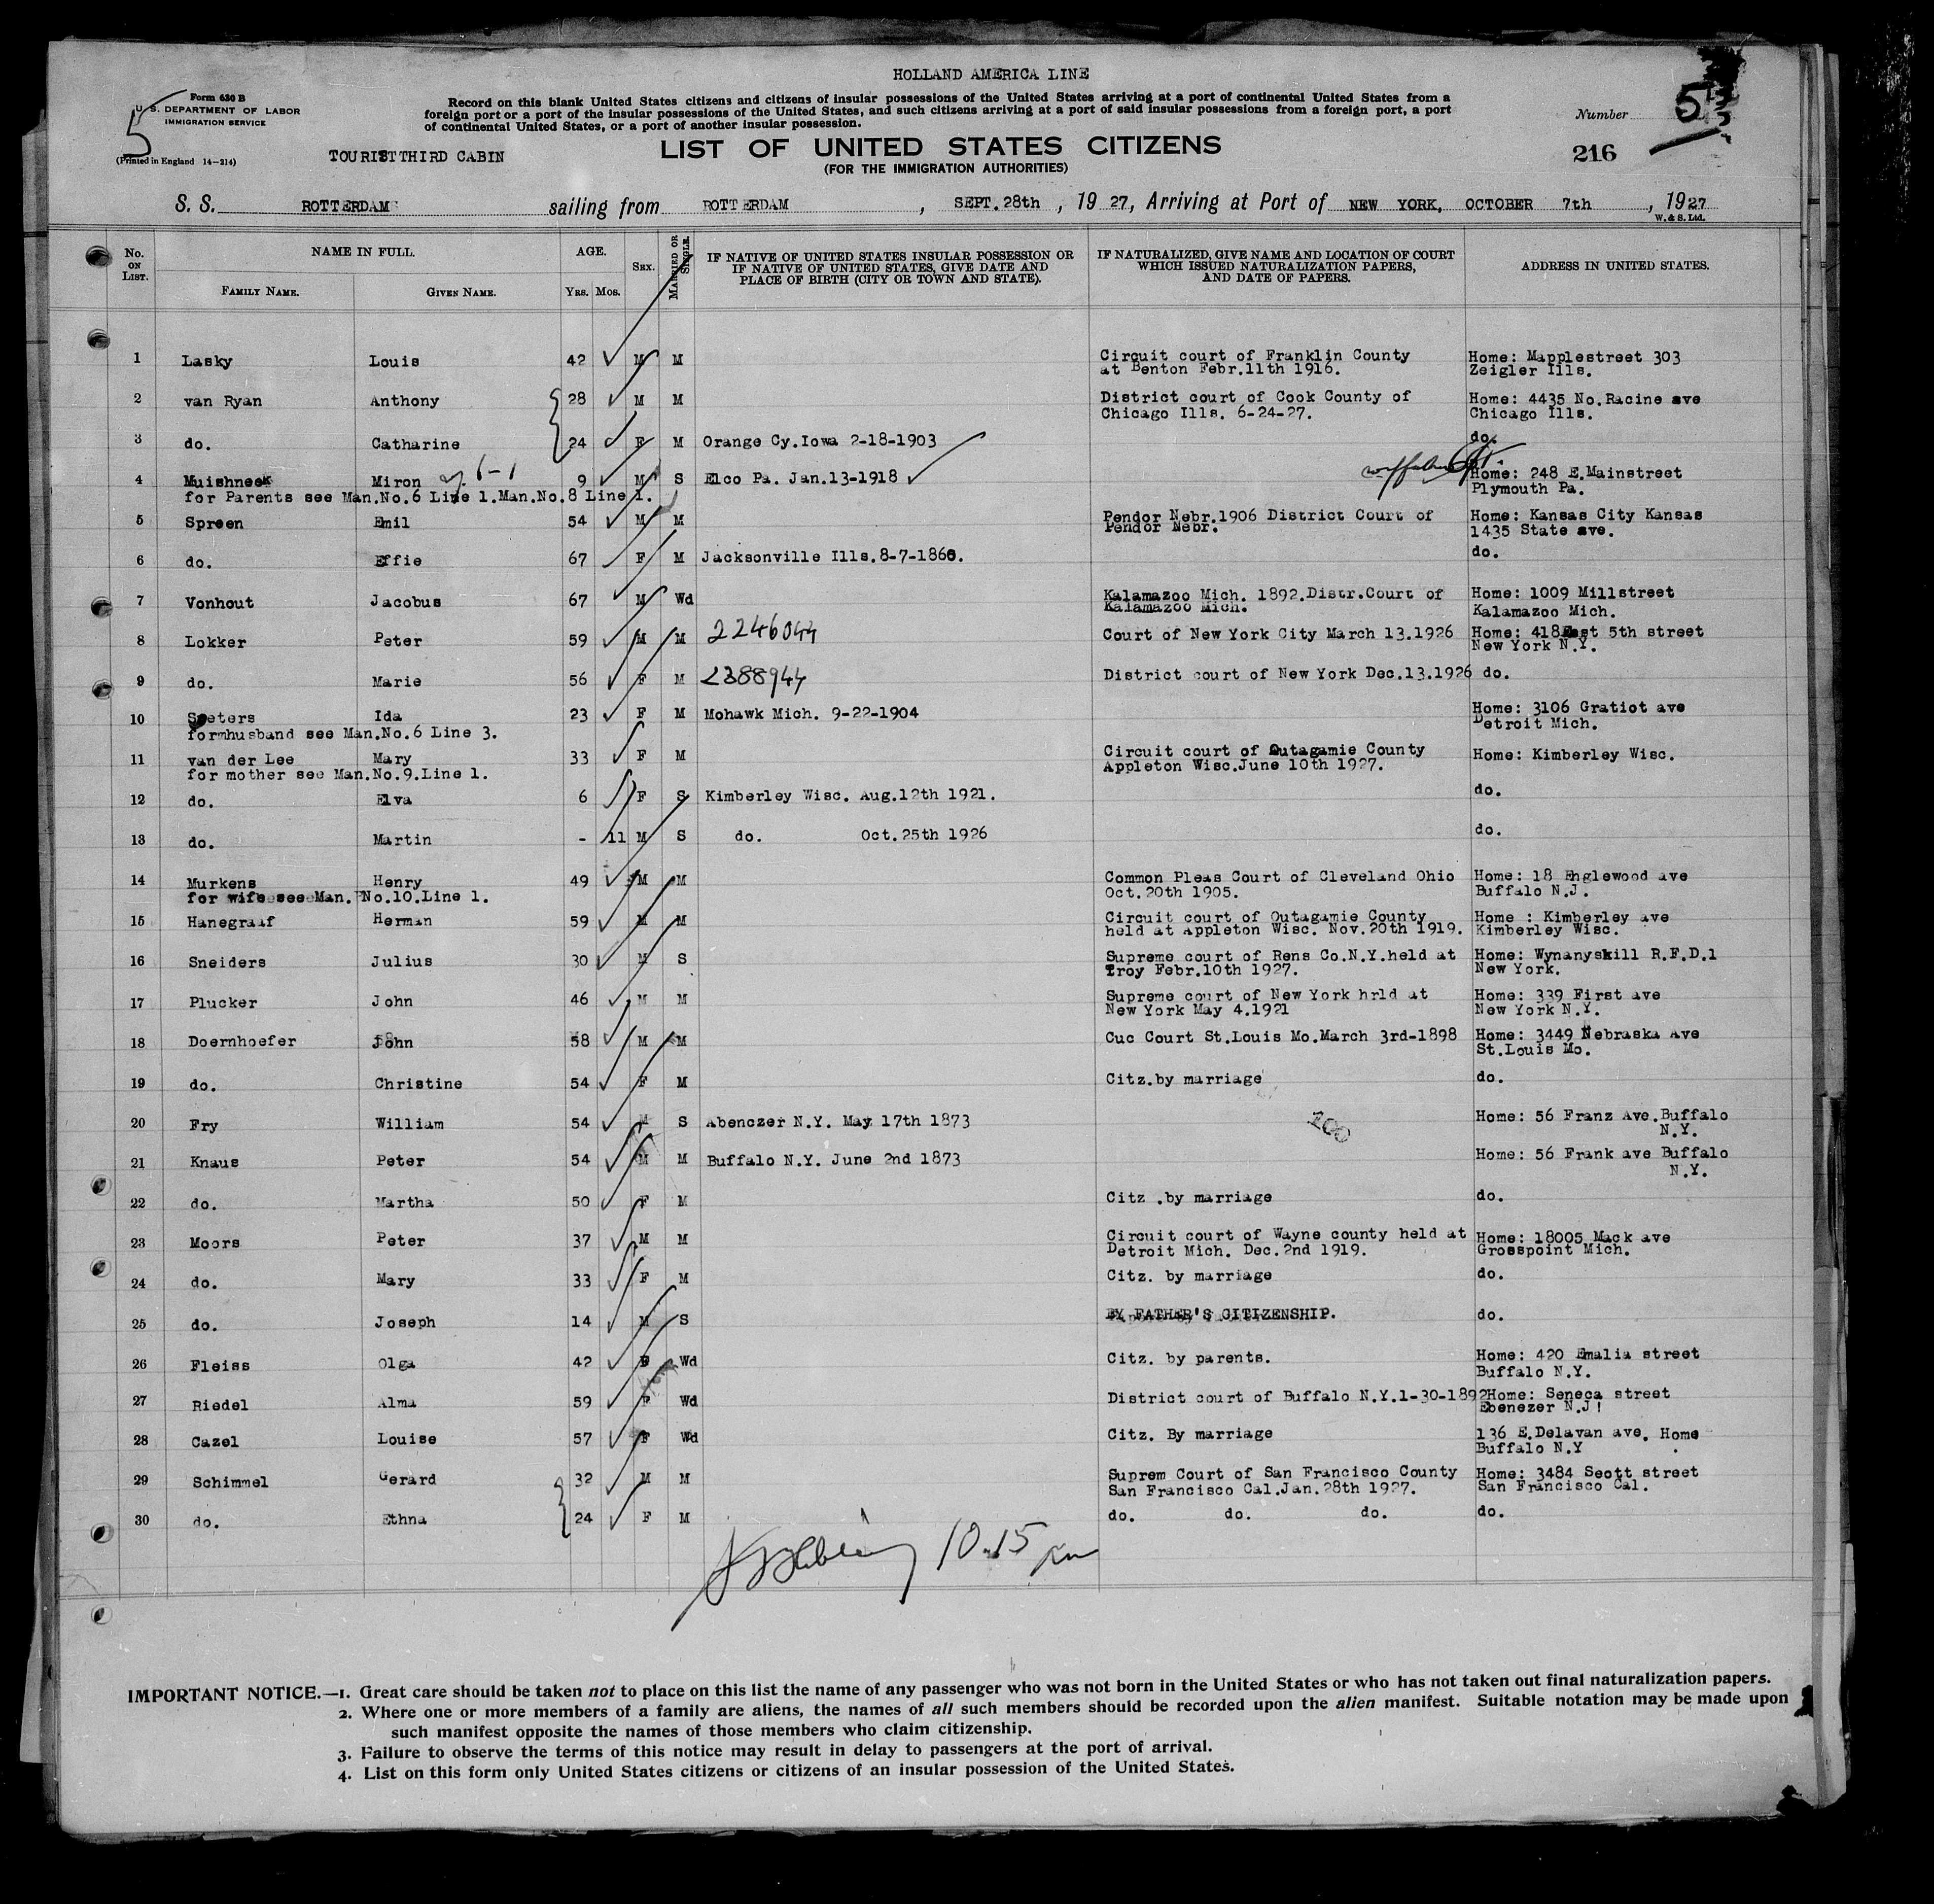 HOLLAND AMERICA LINE
Form 630 B
U. S. DEPARTMENT OF LABOR
IMMIGRATION SERVICE
5
(Printed in England 14—214)
Record on this blank United States citizens and citizens of insular possessions of the United States arriving at a port of continental United States from a
foreign port or a port of the insular possessions of the United States, and such citizens arriving at a port of said insular possessions from a foreign port, a port
of continental United States, or a port of another insular possession.
Number 5
TOURIST THIRD CABIN
LIST OF UNITED STATES CITIZENS
(FOR THE IMMIGRATION AUTHORITIES)
216
S. S. ROTTERDAM sailing from ROTTERDAM, SEPT.28th, 1927, Arriving at Port of NEW YORK, OCTOBER 7th, 1927
W. & S. Ltd.
No. ON LIST. NAME IN FULL. AGE. SEX. MARRIED OR SINGLE. IF NATIVE OF UNITED STATES INSULAR POSSESSION OR IF NATIVE OF UNITED STATES, GIVE DATE AND PLACE OF BIRTH (CITY OR TOWN AND STATE). IF NATURALIZED, GIVE NAME AND LOCATION OF COURT WHICH ISSUED NATURALIZATION PAPERS, AND DATE OF PAPERS. ADDRESS IN UNITED STATES.
FAMILY NAME. GIVEN NAME. YRS. MOS.
1 Lasky Louis 42 M M Circuit court of Franklin County Home: Mapplestreet 303
at Benton Febr.11th 1916. Zeigler Ills.
2 van Ryan Anthony 28 M M District court of Cook County of Home: 4435 No.Racine ave
Chicago Ills. 6-24-27. Chicago Ills.
3 do. Catharine 24 F M Orange Cy.Iowa 2-18-1903 do.
4 Muishneek Miron 6-1 9 M S Elco Pa. Jan.13-1918 Home: 248 E.Mainstreet
for Parents see Man.No.6 Line 1.Man.No.8 Line 1. Plymouth Pa.
5 Spreen Emil 54 M M Pendor Nebr.1906 District Court of Home: Kansas City Kansas
Pendor Nebr. 1435 State ave.
6 do. Effie 67 F M Jacksonville Ills.8-7-1860. do.
7 Vonhout Jacobus 67 M Wd Kalamazoo Mich. 1892.Distr.Court of Home: 1009 Millstreet
Kalamazoo Mich. Kalamazoo Mich.
8 Lokker Peter 59 M M 2246044 Court of New York City March 13.1926 Home: 418East 5th street
New York N.Y.
9 do. Marie 56 F M 2388944 District court of New York Dec.13.1926 do.
10 Seeters Ida 23 F M Mohawk Mich. 9-22-1904 Home: 3106 Gratiot ave
formhusband see Man.No.6 Line 3. Detroit Mich.
11 van der Lee Mary 33 F M Circuit court of Outagamie County Home: Kimberley Wisc.
for mother see Man.No.9.Line 1. Appleton Wisc.June 10th 1927.
12 do. Elva 6 F S Kimberley Wisc. Aug.12th 1921. do.
13 do. Martin - 11 M S do. Oct.25th 1926 do.
14 Murkens Henry 49 M M Common Pleas Court of Cleveland Ohio Home: 18 Englewood ave
for wife see Man. No.10.Line 1. Oct.20th 1905. Buffalo N.J.
15 Hanegraaf Herman 59 M M Circuit court of Outagamie County Home : Kimberley ave
held at Appleton Wisc. Nov.20th 1919. Kimberley Wisc.
16 Sneiders Julius 30 M S Supreme court of Rens Co.N.Y.held at Home: Wynanyskill R.F.D.1
Troy Febr.10th 1927. New York.
17 Plucker John 46 M M Supreme court of New York hrld at Home: 339 First ave
New York May 4.1921 New York N.Y.
18 Doernhoefer John 58 M M Cuc Court St.Louis Mo.March 3rd-1898 Home: 3449 Nebraska Ave
St.Louis Mo.
19 do. Christine 54 F M Citz.by marriage do.
20 Fry William 54 M S Abenezer N.Y. May 17th 1873 100 Home: 56 Franz Ave.Buffalo
N.Y.
21 Knaus Peter 54 M M Buffalo N.Y. June 2nd 1873 Home: 56 Frank ave Buffalo
N.Y.
22 do. Martha 50 F M Citz .by marriage do.
23 Moors Peter 37 M M Circuit court of Wayne county held at Home: 18005 Mack ave
Detroit Mich. Dec.2nd 1919. Grosspoint Mich.
24 do. Mary 33 F M Citz. by marriage do.
25 do. Joseph 14 M S BY FATHER'S CITIZENSHIP. do.
26 Fleiss Olga 42 F Wd Citz. by parents. Home: 420 Emalia street
Buffalo N.Y.
27 Riedel Alma 59 F Wd District court of Buffalo N.Y.1-30-1892 Home: Seneca street
Ebenezer N.J!
28 Cazel Louise 57 F Wd Citz. By marriage 136 E.Delavan ave. Home
Buffalo N.Y.
29 Schimmel Gerard 32 M M Suprem Court of San Francisco County Home: 3484 Scott street
San Francisco Cal.Jan.28th 1927. San Francisco Cal.
30 do. Ethna 24 F M do. do. do. do.
10.15 pm
IMPORTANT NOTICE.—1. Great care should be taken not to place on this list the name of any passenger who was not born in the United States or who has not taken out final naturalization papers.
2. Where one or more members of a family are aliens, the names of all such members should be recorded upon the alien manifest. Suitable notation may be made upon
such manifest opposite the names of those members who claim citizenship.
3. Failure to observe the terms of this notice may result in delay to passengers at the port of arrival.
4. List on this form only United States citizens or citizens of an insular possession of the United States.